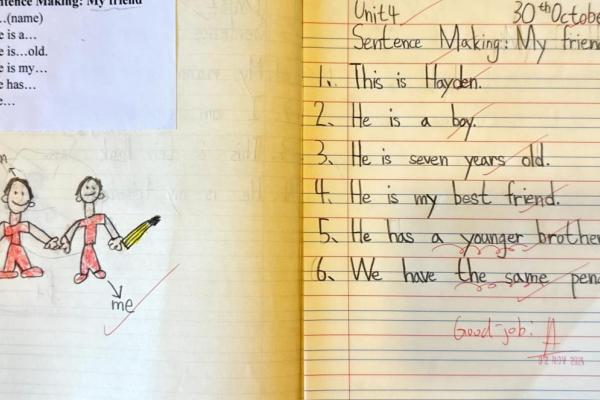 Sentence Making: My friend
...(name)
e is a...
e is...old.
e is my...
e has...
e...
me
Unit4
30th Octobe
Sentence Making: My frien
1、This is Hayden.
2、He is a boy.
3、He is seven years old.
4、He is my best friend.
5、He has a younger brother
6、We have the same penc
Good job! A
02 NOV 2021